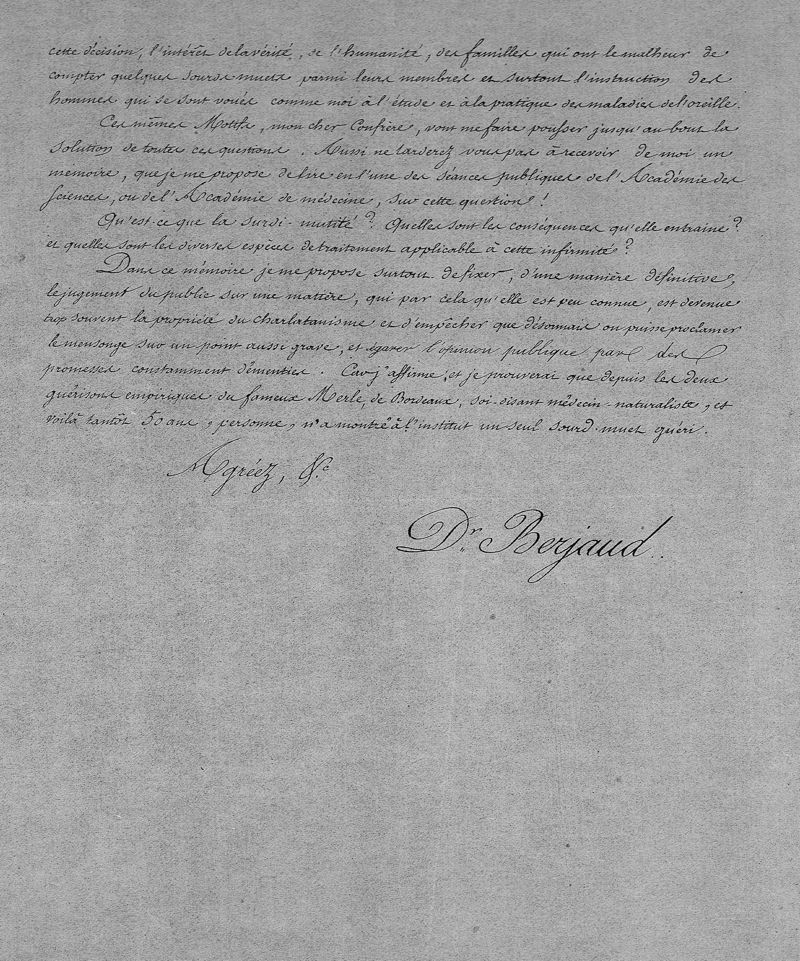 cette décision, l'intérêt de la vérité, de l'humanité, des familles qui ont le malheur de
compter quelques sourds muets parmi leurs membres et surtout l'instruction des
hommes qui se sont voués comme moi à l'étude et à la pratique des maladies de l'oreille.
Ces mêmes Motifs, mon cher Confrère, vont me faire pousser jusqu'au bout la
solution de toutes ces questions. Aussi ne tarderez vous pas à recevoir de moi un
mémoire, que je me propose de lire en l'une des séances publiques de l'Académie des
sciences, ou de l'Académie de médecine, sur cette question!
Qu'est-ce que la surdi-mutité? Quelles sont les conséquences qu'elle entraine?
et quelles sont les diverses espèces de traitement applicable à cette infirmité?
Dans ce mémoire je me propose surtout de fixer, d'une manière définitive,
le jugement du public sur une matière, qui par cela qu'elle est peu connue, est devenue
trop souvent la propriété du charlatanisme et d'empêcher que désormais on puisse proclamer
le mensonge sur un point aussi grave, et égarer l'opinion publique par des
promesses constamment démenties. Car j'affirme, et je prouverai que depuis les deux
guérisons empiriques du fameux Merle, de Bordeaux, soi-disant médecin-naturaliste, et
voilà tantôt 50 ans, personne, n'a montré à l'institut un seul sourd-muet guéri.
Agréez, &c
Dr Berjaud.